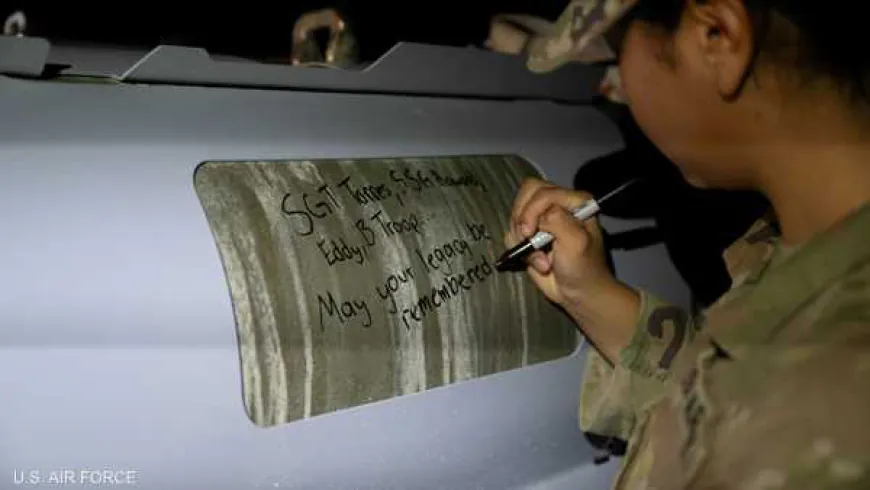 SGT Torres, SSG
Eddy, B Troop...
May your legacy be
remembered
U.S. AIR FORCE